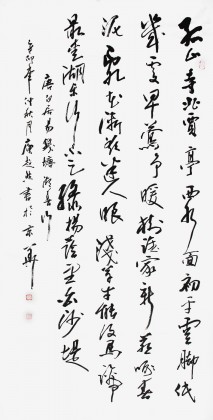 孤山寺北賈亭西水面初平雲脚低
幾處早鶯爭暖樹誰家新燕啄春
泥亂花漸欲迷人眼淺草才能没馬蹄
最愛湖東行不足綠楊蔭里白沙堤
唐白居易錢塘湖春行
辛卯年仲秋月書於京華